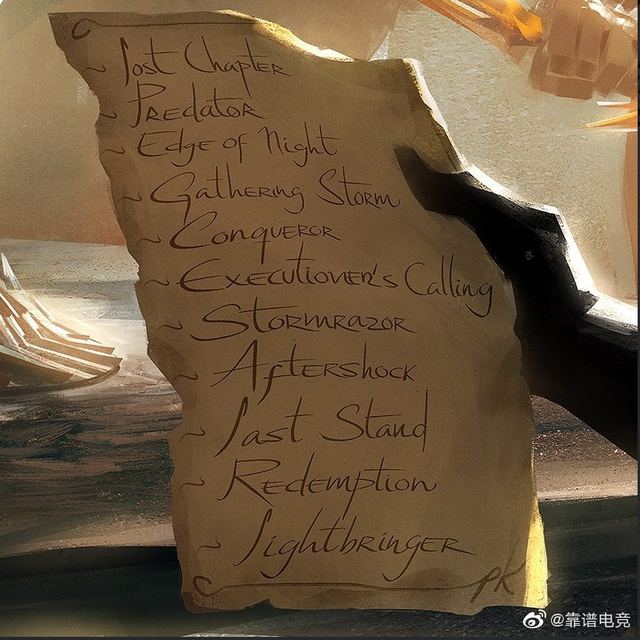 ~ Lost Chapter
~ Predator
~ Edge of Night
~ Gathering Storm
~ Conqueror
~ Executioner's Calling
~ Stormrazor
~ Aftershock
~ Last Stand
~ Redemption
~ Lightbringer
PK
@靠谱电竞